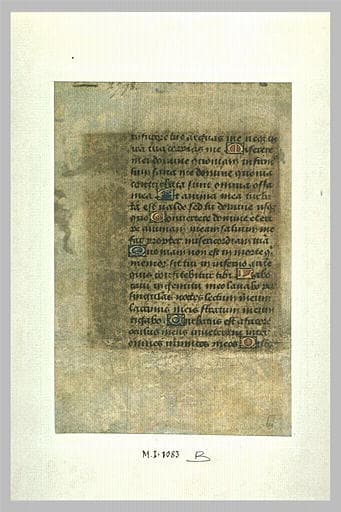 in furore tuo arguas me neqz in
ira tua corripias me Miserere
mei domine quoniam infirm
sum sana me domine quonia
conturbata sunt omnia ossa
mea Et anima mea turba
ta est valde sed tu domine usqz
quo Convertere domine et eri
pe animam meam salvum me
fac propter misericordiam tua
Quoniam non est in morte q
memor sit tui in inferno
quis confitebitur tibi Labo
ravi in gemitu meo lavabo per
singulas noctes lectum meum
lacrimis meis stratum meum
rigabo Turbatus est a furore
oculus meus inveteravi inter
omnes inimicos meos
M.I.1083 B